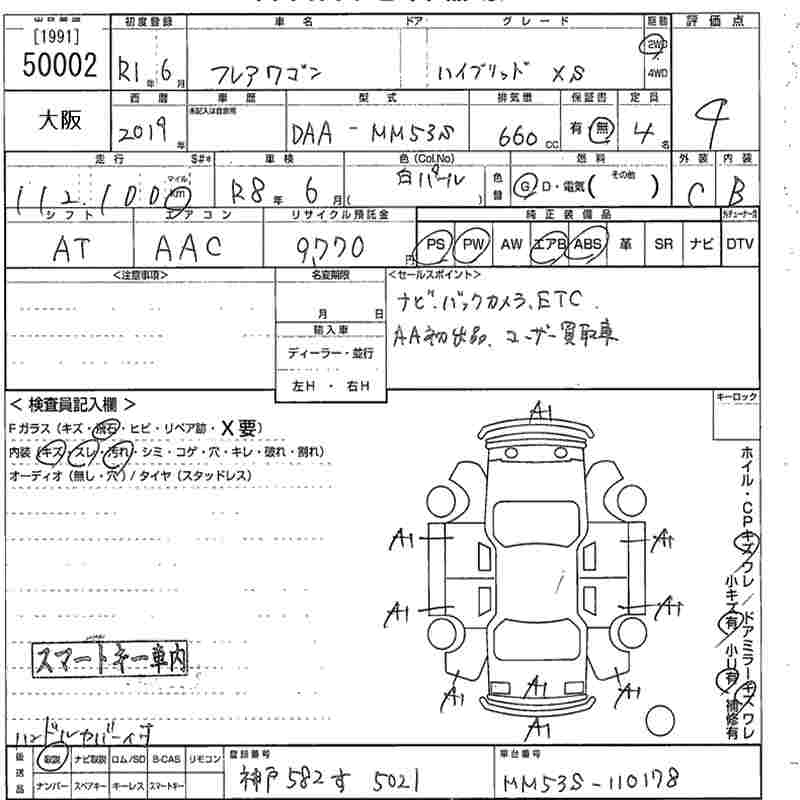 [1991]
50002
初度登録 車名 ドア グレード 駆動 評価点
R1年6月 フレアワゴン ハイブリッド XS 2WD 4WD 4
大阪
西暦 車歴 型式 排気量 保証書 定員
未記入は自家用
2019年 DAA-MM53S 660cc 有・無 4名
走行 S#* 車検 色(Col.No) 色替 燃料 外装 内装
マイル
112,100km R8年6月 白パール ( ) G D・電気(その他) C B
シフト エアコン リサイクル預託金 純正装備品
AT AAC 9,770円 PS PW AW エアB ABS 革 SR ナビ DTV
<注意事項> 名変期限 <セールスポイント>
月 日
輸入車
ディーラー・並行
左H・右H
ナビ.バックカメラ、ETC.
AA初出品、ユーザー買取車
キーロック
<検査員記入欄>
Fガラス(キズ・飛石・ヒビ・リペア跡・X要)
内装(キズ・スレ・汚れ・シミ・コゲ・穴・キレ・破れ・割れ)
オーディオ(無し・穴)/タイヤ(スタッドレス)
A1
A1 A1
A1 A1
A1 A1 A1
A1
ホイル・CPキズワレ/ドアミラーキズワレ
小キズ有 小U有 補修有
スマートキー車内
ハンドルカバー付
後送品 取説 ナビ取説 ロム/SD B-CAS リモコン
ナンバー スペアキー キーレス スマートキー
登録番号 車台番号
神戸 582 す 5021 MM53S-110178